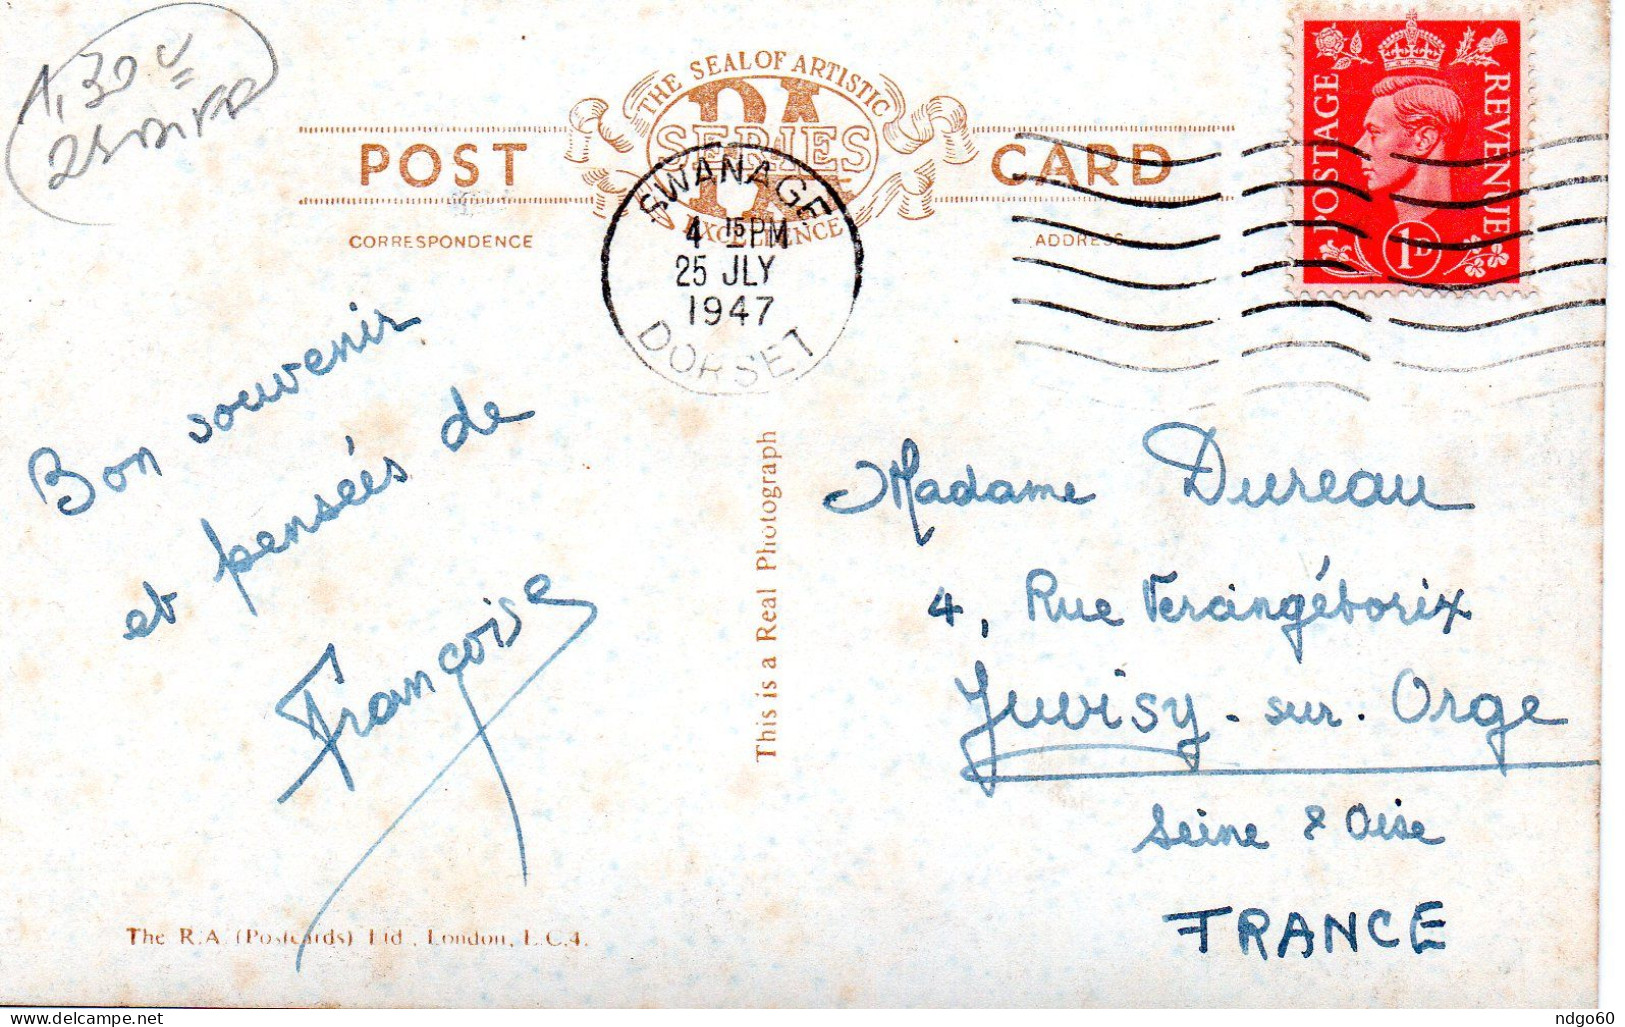 1,30 v
THE SEAL OF ARTISTIC
RA
SERIES
EXCELLENCE
POST CARD
CORRESPONDENCE
ADDRESS
SWANAGE
4 15 PM
25 JLY
1947
DORSET
POSTAGE
REVENUE
1D
Bon souvenir
et pensées de
Françoise
This is a Real Photograph
Madame Dureau
4, Rue Vercingétorix
Juvisy-sur-Orge
Seine & Oise
FRANCE
The R.A. (Postcards) Ltd., London, E.C.4.
ndgo60